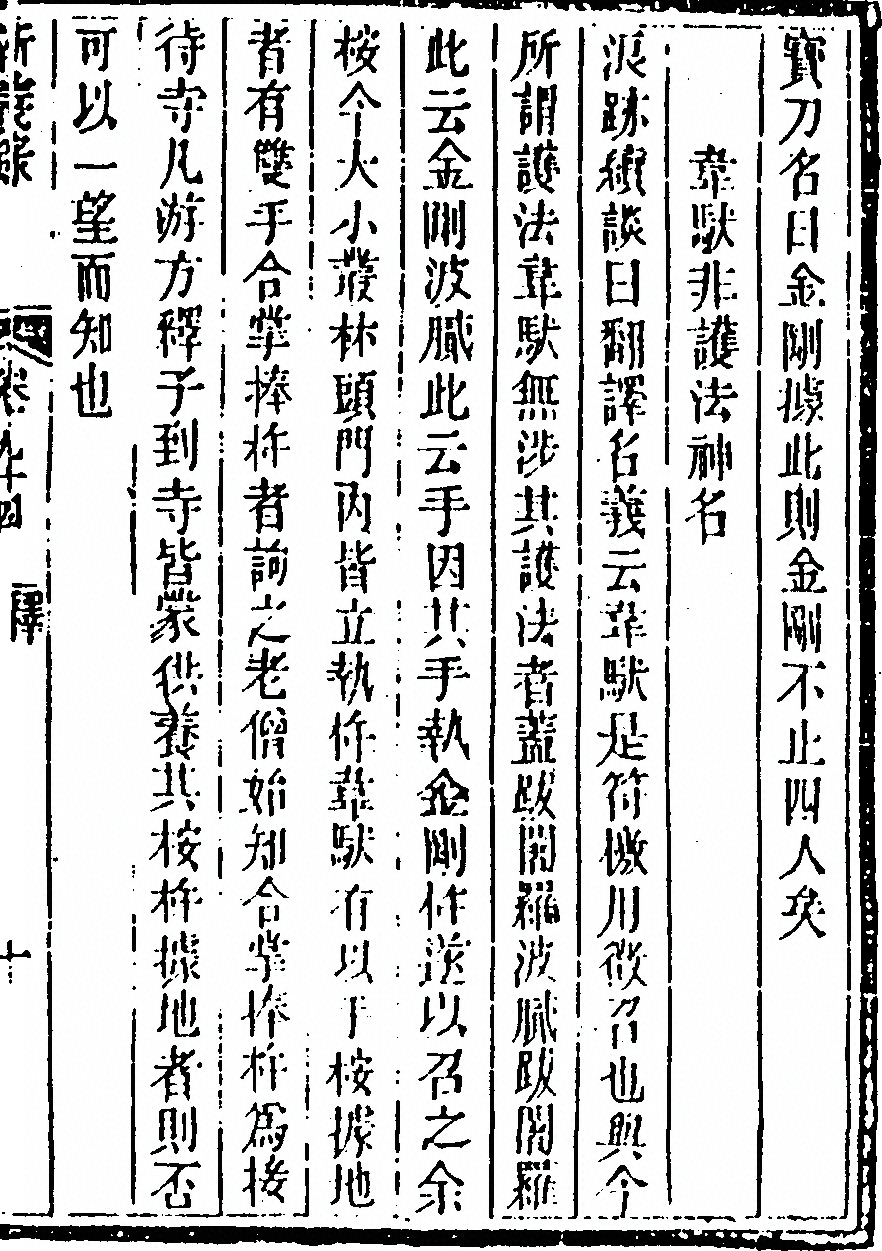 寶刀名曰金剛擬此則金剛不止四人矣
韋馱非護法神名
浪跡續談曰翻譯名義云韋馱是符檄用徵召也與今
所謂護法韋馱無涉其護法者蓋跋闍羅波膩跋闍羅
此云金剛波膩此云手因其手執金剛杵遂以召之余
按今大小叢林頭門內皆立執杵韋馱有以手按據地
者有雙手合掌捧杵者詢之老僧始知合掌捧杵爲接
待寺凡游方釋子到寺皆蒙供養其按杵據地者則否
可以一望而知也
卷九十四
釋
十